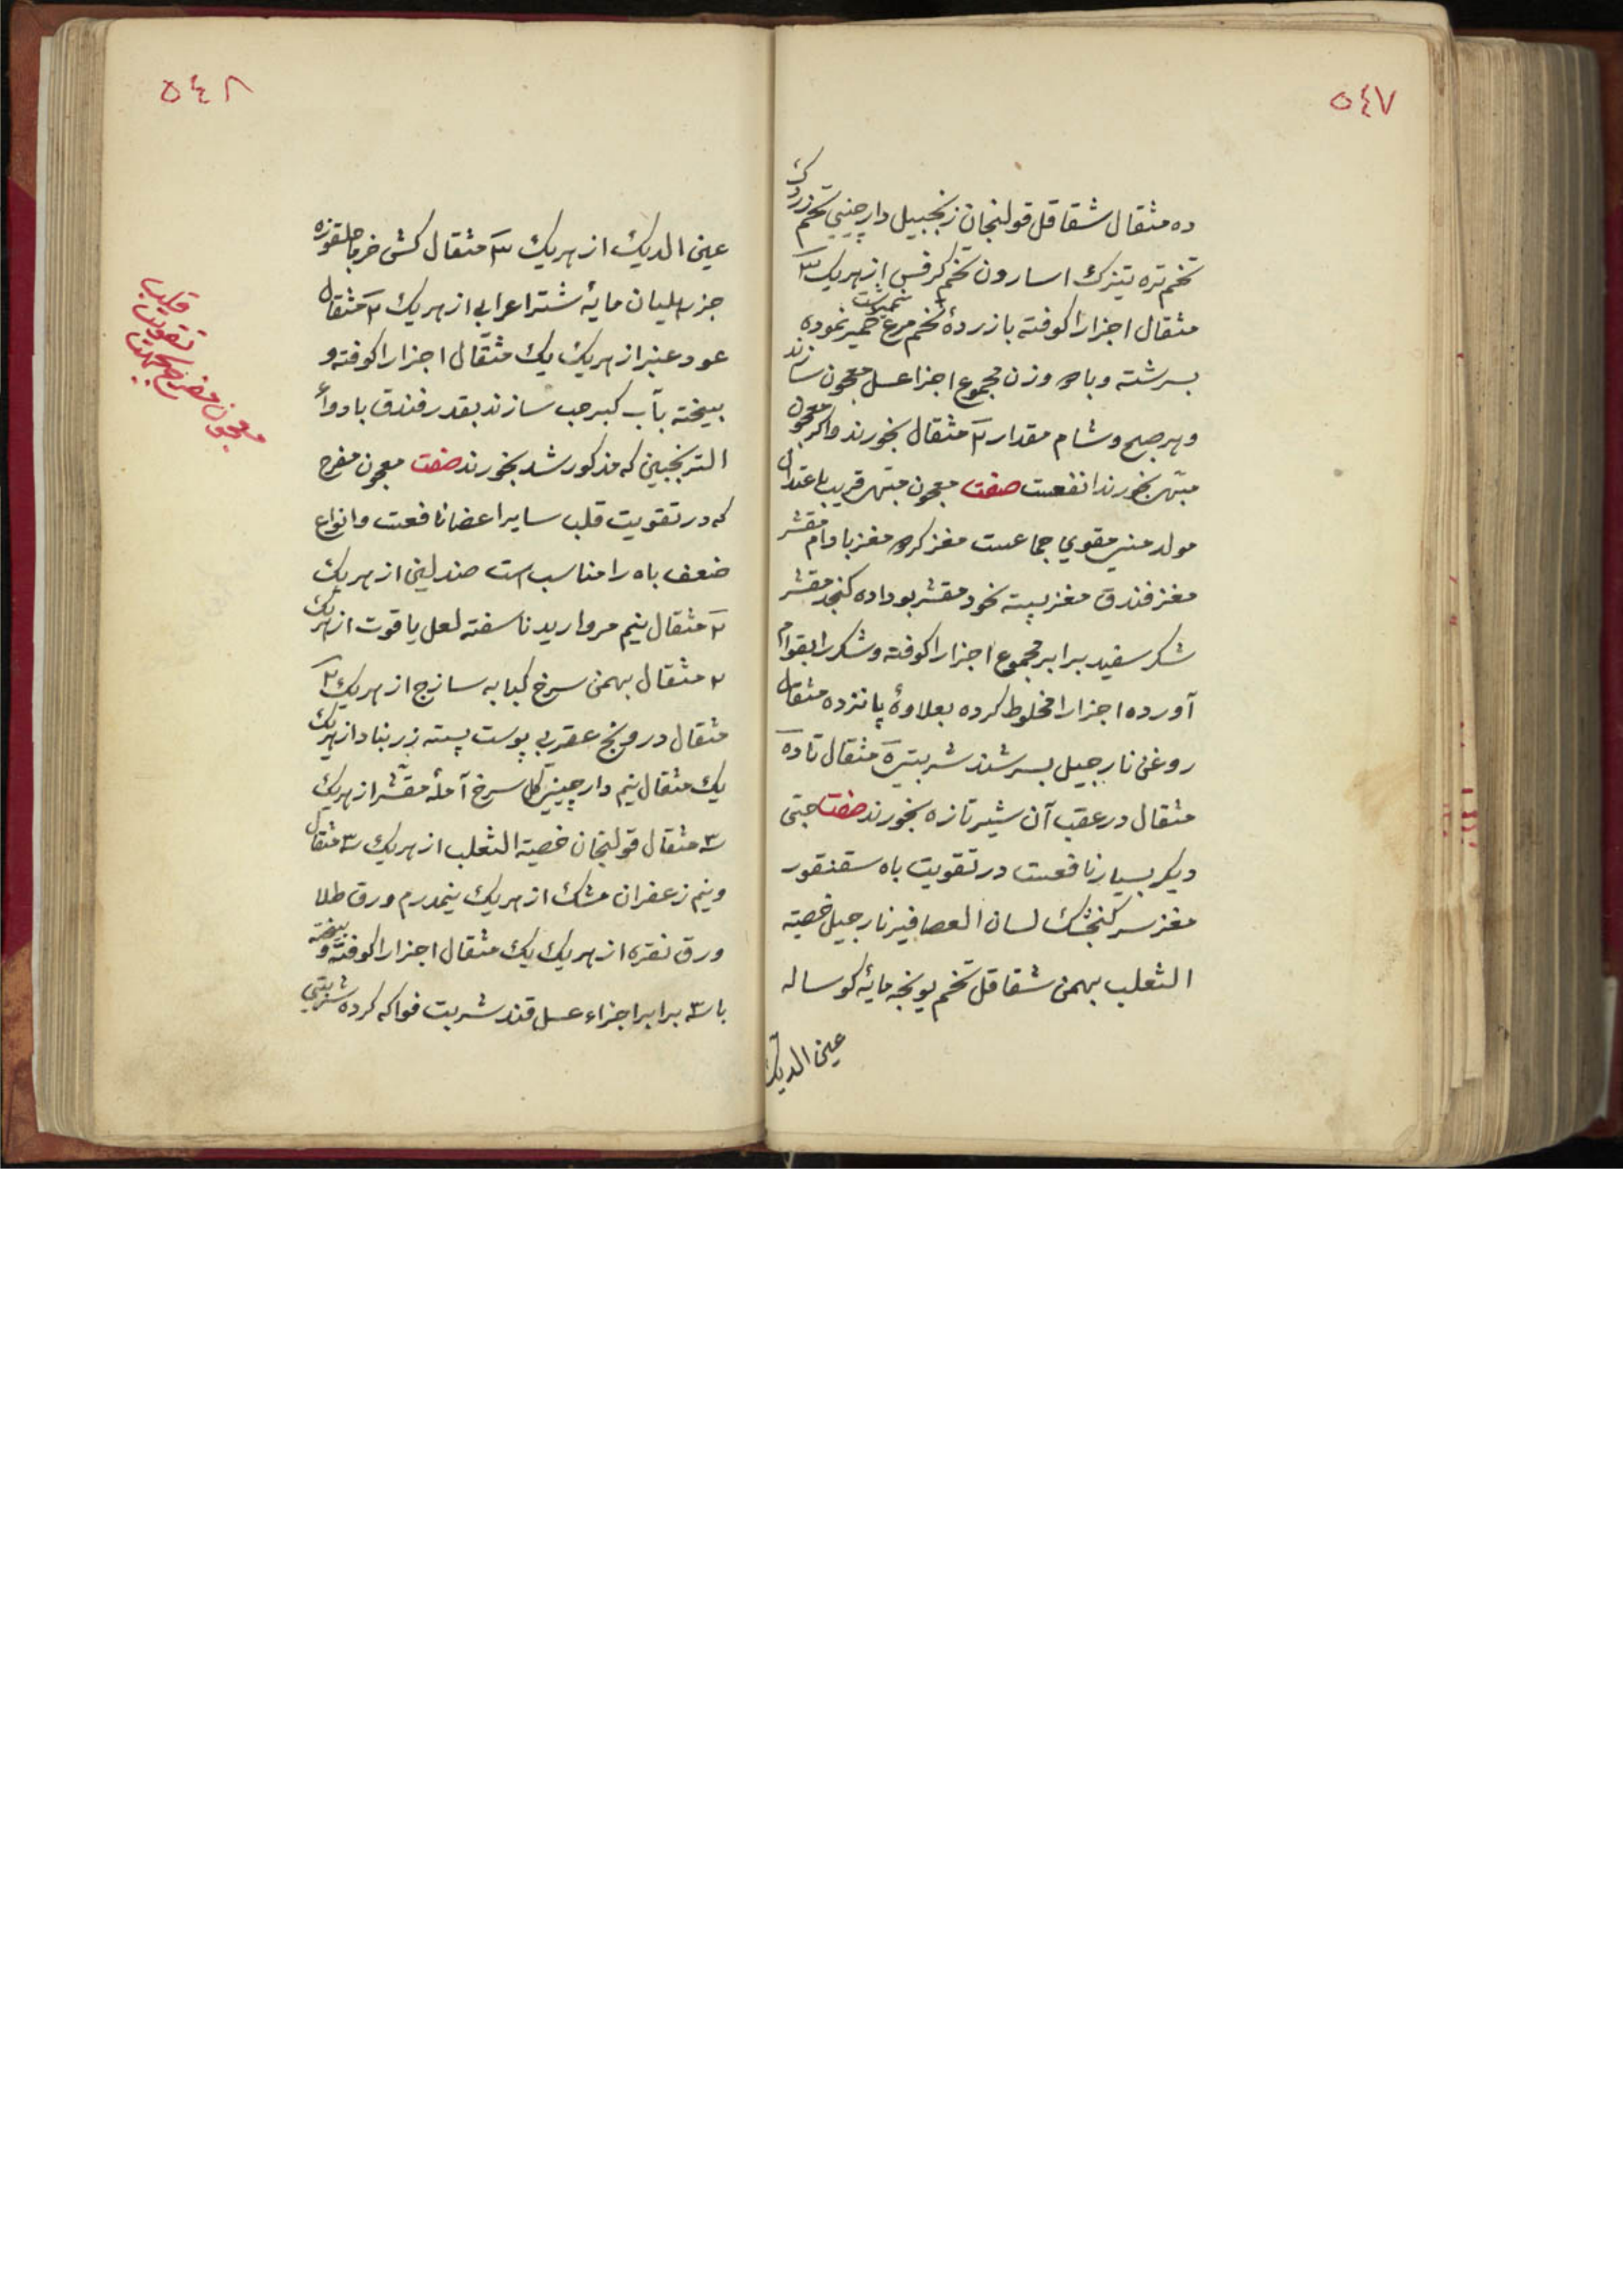 ٥٤٧
ده مثقال شقاقل قولنجان زنجبیل دارچینی تخم زردك
تخم تره تیزك اسارون تخم کرفس از هریك ٣
مثقال اجزارا کوفته با زردهٔ تخم مرغ نمیرشت خمیر نموده
بسرشته و با وزن مجموع اجزا عسل معجون سازند
و هر صبح و شام مقدار ٢ مثقال بخورند و اکر معجون
مبهّی بخورند انفعست صفت معجون مبهّی قریب باعتدال
مولد منی مقوی جماعست مغز کردو مغز بادام مقشر
مغز فندق مغز پسته نخود مقشر بوداده کنجد مقشر
شکر سفید برابر مجموع اجزارا کوفته و شکر را بقوام
آورده اجزارا مخلوط کرده بعلاوهٔ پانزده مثقال
روغن نارجیل بسرشند شربتی مثقال تا ده
مثقال در عقب آن شیر تازه بخورند صفت حبّی
دیکر بسیار نافعست در تقویت باه سقنقور
مغز سر کنجشك لسان العصافیر نارجیل خصیة
الثعلب بهمن شقاقل تخم یونجه مایهٔ کوساله
عین الدیك
٥٤٨
عین الدیك از هریك ٣ مثقال کش خرما چلقوزه
جز مایهٔ شتر اعرابی از هریك ٢ مثقال
عود عنبر از هریك یك مثقال اجزارا کوفته و
بیخته بآب کبر حب سازند بقدر فندق با دواء
الترنجبین که مذکور شد بخورند صفت معجون مفرح
که در تقویت قلب سایر اعضا نافعست و انواع
ضعف باه را مناسب است صندلین از هریك
٢ مثقال نیم مروارید ناسفته لعل یاقوت از هریك
٢ مثقال بهمن سرخ کبابه سازج از هریك ٢
مثقال درونج عقربی پوست پسته زرنباد از هریك
یك مثقال نیم دارچینی کل سرخ آملهٔ مقشّر از هریك
٣ مثقال قولنجان خصیة الثعلب از هریك ٣ مثقال
و نیم زعفران مشك از هریك نیمدرم ورق طلا
ورق نقره از هریك یك مثقال اجزارا کوفته و بیخته
با ٣ برابر اجزاء عسل قند شربت فواکه کرده شربتی
معجون مفرح بجهت تقویت قلب